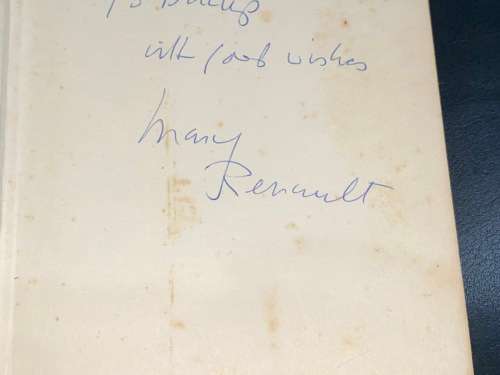 To
with good wishes
Mary
Renault